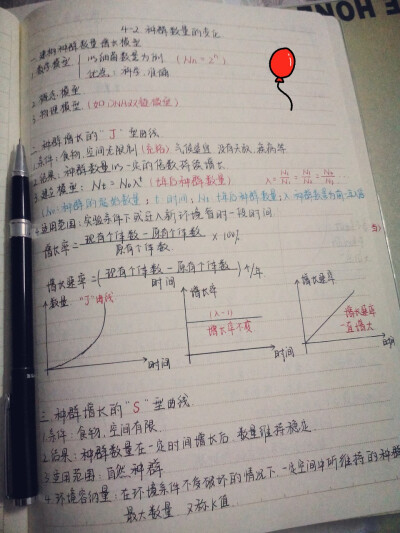 4-2 种群数量的变化
一. 建构种群数量增长模型
1. 数学模型 以细菌数量为例 (Nn = 2ⁿ)
优点: 科学, 准确
2. 概念模型
3. 物理模型 (如: DNA双螺旋模型)
二. 种群增长的“J”型曲线
1. 条件: 食物, 空间无限制 (充裕) 气候适宜 没有天敌, 疾病等
2. 结果: 种群数量以一定的倍数持续增长
3. 建立模型: Nt = N₀λᵗ (t年后种群数量)
N₀: 种群的起始数量; t: 时间; Nt: t年后种群数量; λ: 种群数量为前一年的
4. 适用范围: 实验条件下或迁入新环境后的一段时间
增长率 = 现有个体数 - 原有个体数 / 原有个体数 × 100%
增长速率 = (现有个体数 - 原有个体数 / 时间) 个/年
数量 “J”曲线 时间
增长率 (λ-1) 增长率不变 时间
增长速率 增长速率一直增大 时间
三. 种群增长的“S”型曲线
1. 条件: 食物, 空间有限.
2. 结果: 种群数量在一定时间增长后, 数量维持稳定
3. 适用范围: 自然种群
4. 环境容纳量: 在环境条件不受破坏的情况下, 一定空间中所维持的种群
最大数量 又称K值
HOME